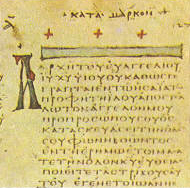 ΚΑΤΑ ΜΑΡΚΟΝ
ΑΡΧΗ ΤΟΥ ΕΥΑΓΓΕΛΙΟΥ
ΙΥ ΧΥ ΥΙΟΥ ΘΥ ΚΑΘΩϹ ΓΕ
ΓΡΑΠΤΑΙ ΕΝ ΤΩ ΗϹΑΙΑ ΤΩ
ΠΡΟΦΗΤΗ ΙΔΟΥ ΑΠΟϹΤΕΛ
ΛΩ ΤΟΝ ΑΓΓΕΛΟΝ ΜΟΥ
ΠΡΟ ΠΡΟϹΩΠΟΥ ϹΟΥ ΟϹ
ΚΑΤΑϹΚΕΥΑϹΕΙ ΤΗΝ ΟΔΟΝ
ϹΟΥ ΦΩΝΗ ΒΟΩΝΤΟϹ
ΕΝ ΤΗ ΕΡΗΜΩ ΕΤΟΙΜΑϹ
ΑΤΕ ΤΗΝ ΟΔΟΝ ΚΥ ΕΥΘΕΙΑϹ
ΠΟΙΕΙΤΕ ΤΑϹ ΤΡΙΒΟΥϹ ΑΥ
ΤΟΥ ΕΓΕΝΕΤΟ ΙΩΑΝΝΗϹ